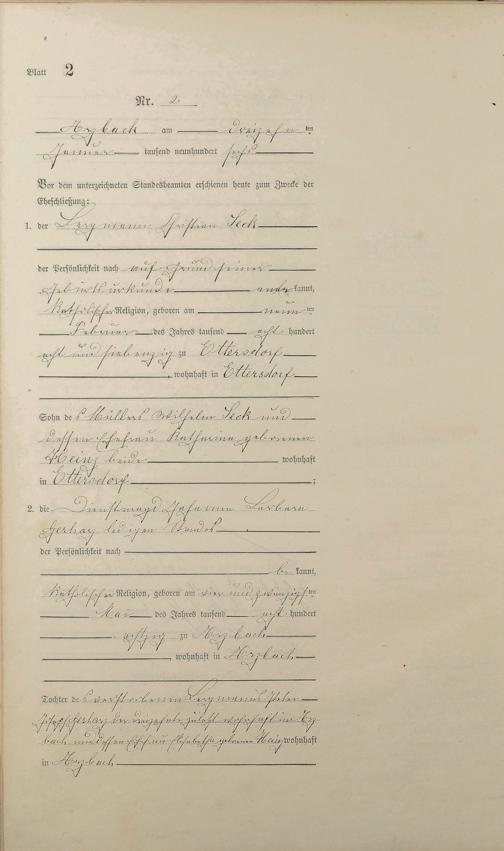 Blatt 2
Nr. 2.
Arzbach am dreizehn ten
Januar tausend neunhundert sechs
Vor dem unterzeichneten Standesbeamten erschienen heute zum Zwecke der
Eheschließung:
1. der Bergmann Christian Seck
der Persönlichkeit nach auf Grund seiner
Geburtsurkunde anerkannt,
katholischer Religion, geboren am neun ten
Februar des Jahres tausend acht hundert
acht und siebenzig zu Ettersdorf
, wohnhaft in Ettersdorf
Sohn des Müllers Wilhelm Seck und
dessen Ehefrau Katharina geborenen
Heinz beide wohnhaft
in Ettersdorf ;
2. die Dienstmagd Johanna Barbara
Gerhartz ledigen Standes
der Persönlichkeit nach
be kannt,
katholischer Religion, geboren am vier und zwanzigsten
Mai des Jahres tausend acht hundert
achtzig zu Arzbach
, wohnhaft in Arzbach
Tochter des verstorbenen Bergmanns Peter
Josef Gerhartz zuletzt wohnhaft in Arz-
bach und dessen Ehefrau Elisabetha geborene wohnhaft
in Arzbach